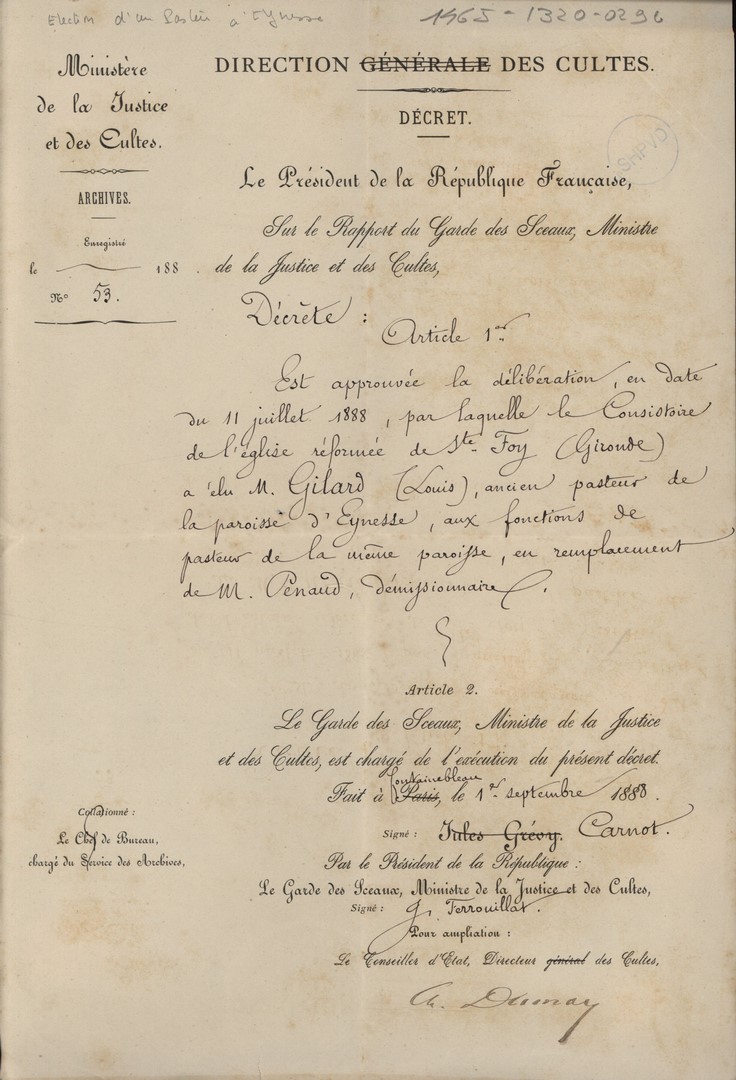 Election d'un Pasteur à Eynesse
1465-1320-0296
Ministère
de la Justice
et des Cultes.
ARCHIVES.
Enregistré
le 188 .
N° 53.
DIRECTION GÉNÉRALE DES CULTES.
DÉCRET.
SHPVD
Le Président de la République Française,
Sur le Rapport du Garde des Sceaux, Ministre
de la Justice et des Cultes,
Décrète :
Article 1er.
Est approuvée la délibération, en date
du 11 juillet 1888, par laquelle le Consistoire
de l'église réformée de Ste Foy (Gironde)
a élu M. Gilard (Louis), ancien pasteur de
la paroisse d'Eynesse, aux fonctions de
pasteur de la même paroisse, en remplacement
de M. Penaud, démissionnaire.
Article 2.
Le Garde des Sceaux, Ministre de la Justice
et des Cultes, est chargé de l'exécution du présent décret.
Fontainebleau
Fait à Paris, le 1er septembre 1888.
Signé : Jules Grévy. Carnot.
Par le Président de la République :
Le Garde des Sceaux, Ministre de la Justice et des Cultes,
Signé : J. Ferrouillat.
Pour ampliation :
Le Conseiller d'État, Directeur général des Cultes,
Ch. Dumay
Collationné :
Le Chef de Bureau,
chargé du Service des Archives,